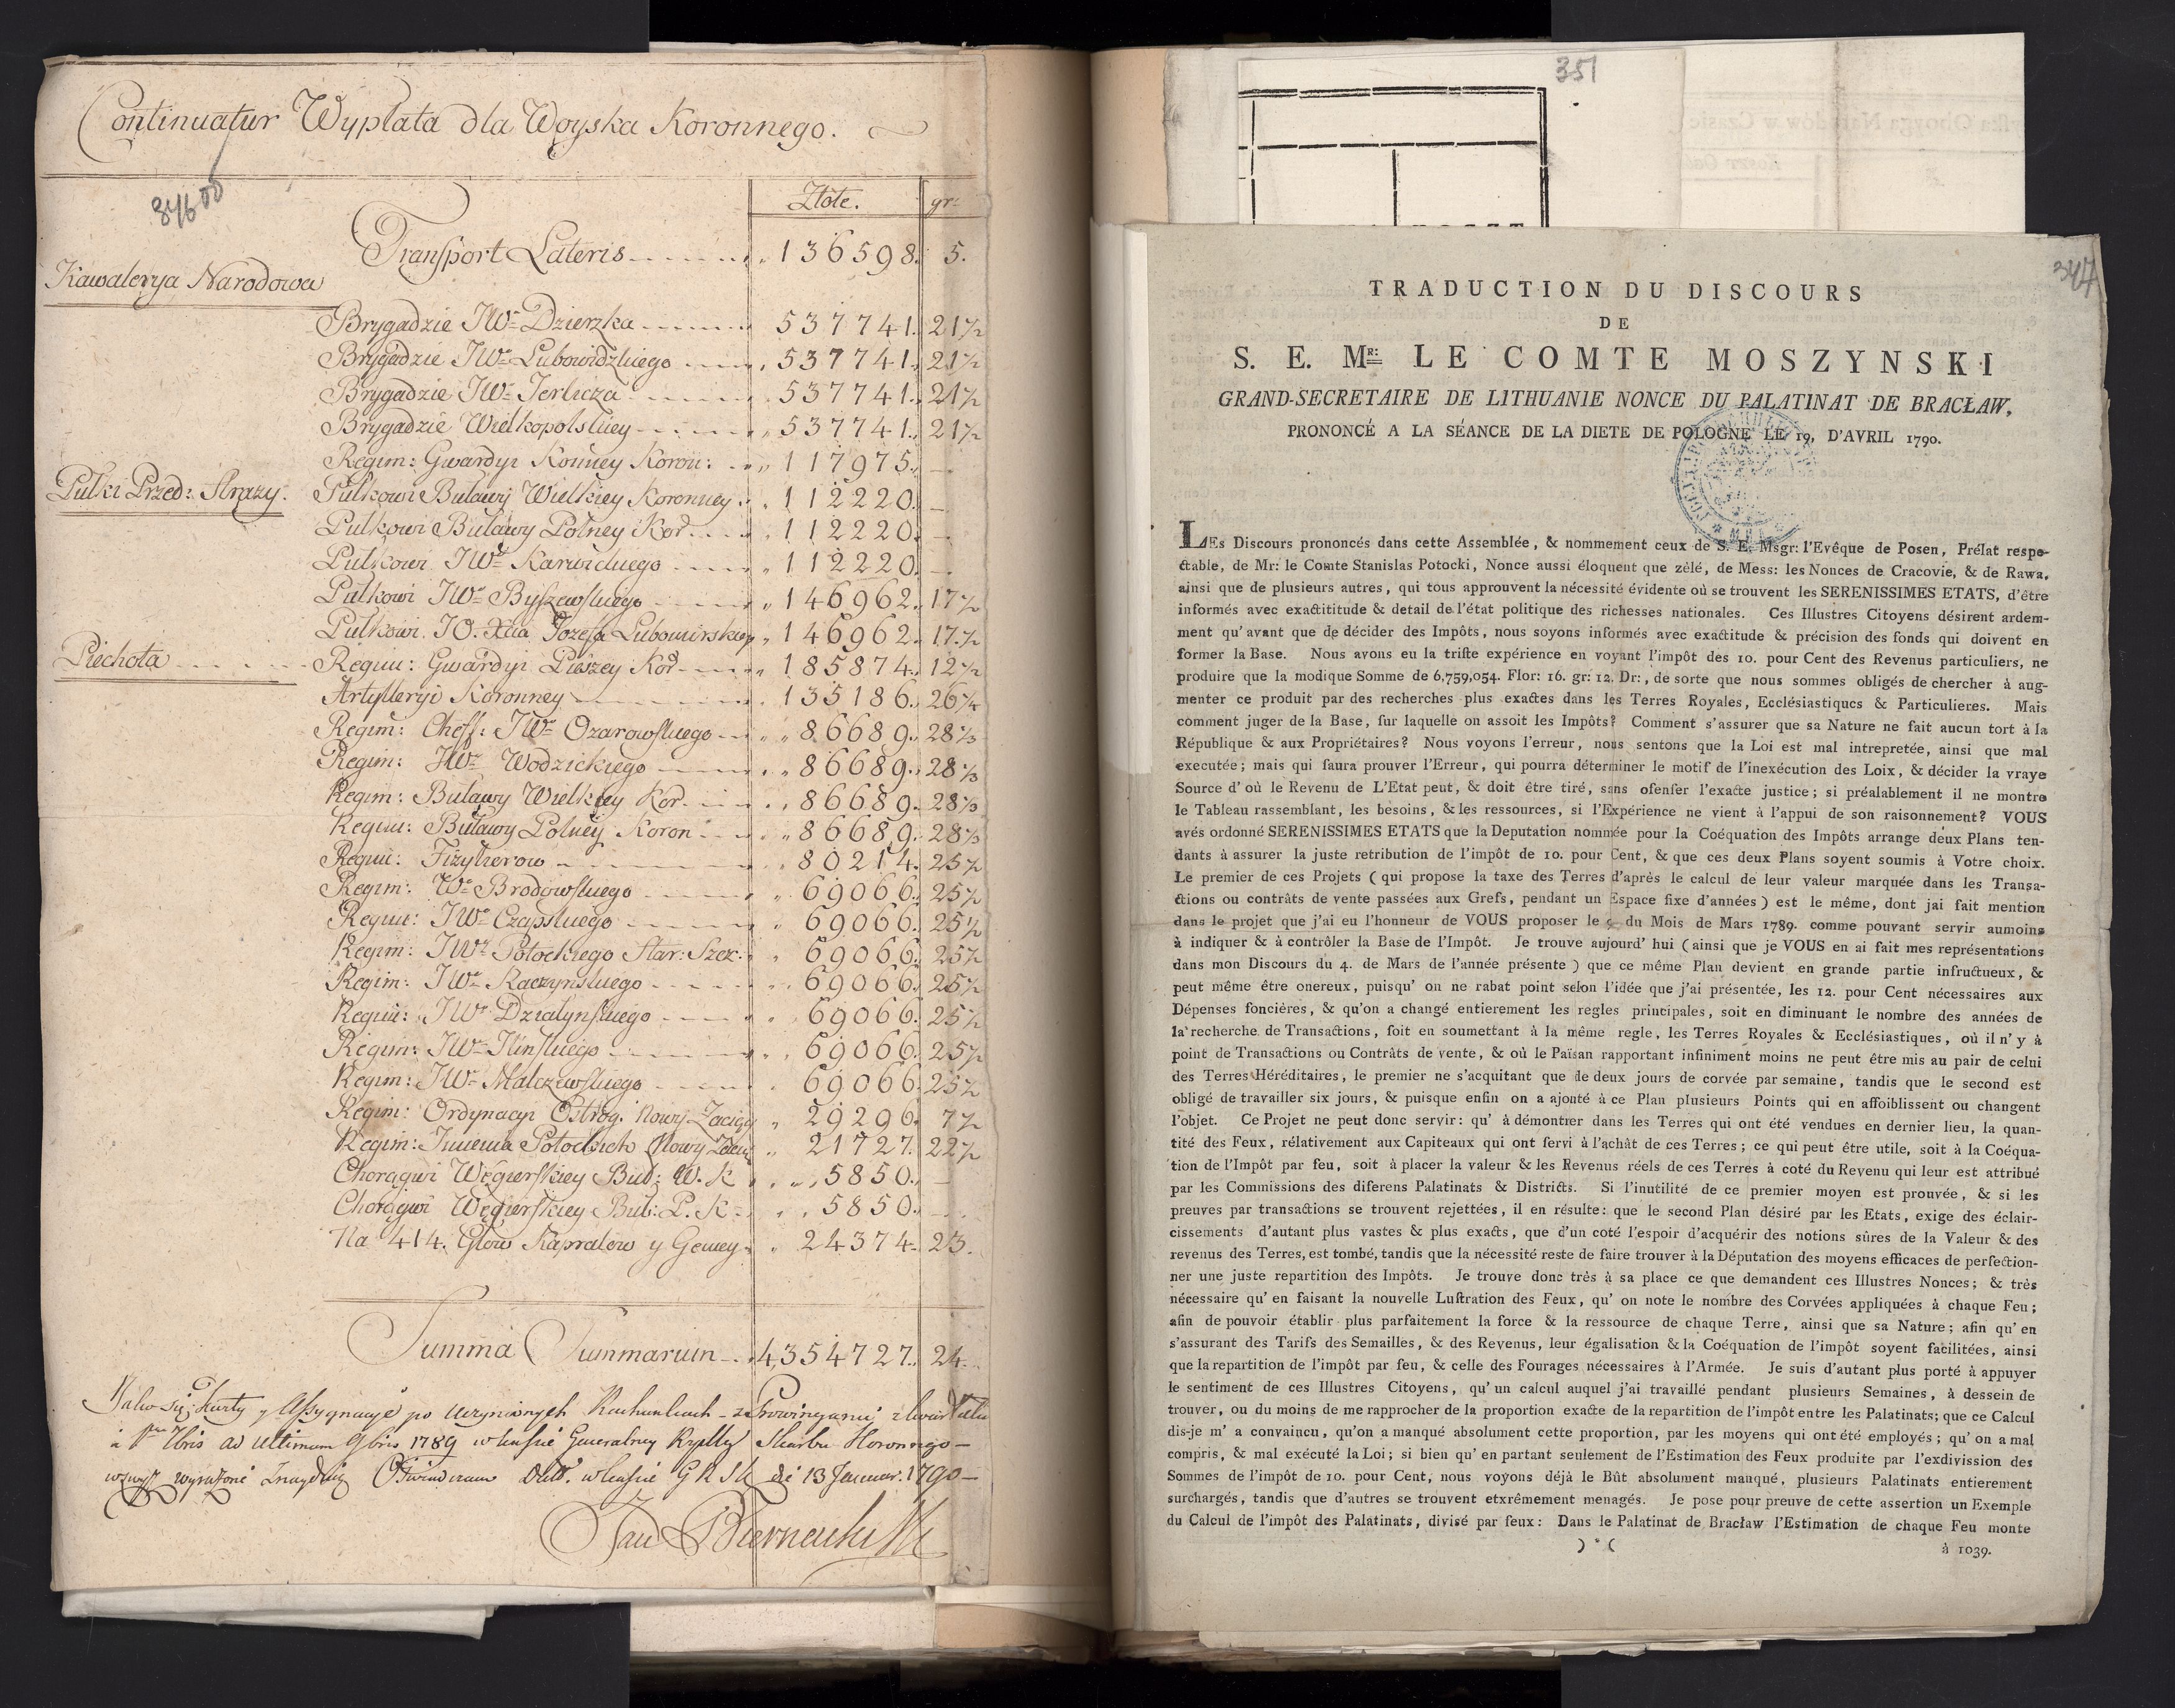 Continuatur Wypłata dla Woyska Koronnego.
34600
Złote. gr:
Transport Lateris 136598. 5.
Kawalerya Narodowa
Brygadzie JWo Dzierzka 537741. 21 1/2
Brygadzie JWo Lubowidzkiego 537741. 21 1/2
Brygadzie JWo Jerlicza 537741. 21 1/2
Brygadzie Wielkopolskiey 537741. 21 1/2
Regim: Gwardyi Konney Koron: 117975. —
Pulki Przed: Strazy. Pulkowi Buławy Wielkiey Koronney 112220. —
Pulkowi Buławy Polney Kor 112220. —
Pulkowi JWo Karwickiego 112220. —
Pulkowi JWo Byszewskiego 146962. 17 1/2
Pulkowi JO. Xcia Jozefa Lubomirskiego 146962. 17 1/2
Piechota Regim: Gwardyi Pieszey Kor 185874. 12 1/2
Artylleryi Koronney 135186. 26 1/4
Regim: Cheff: JWo Ozarowskiego 86689. 28 1/3
Regim: JWo Wodzickiego 86689. 28 1/3
Regim: Buławy Wielkiey Kor 86689. 28 1/3
Regim: Buławy Polney Koron 86689. 28 1/3
Regim: Fizylierow 80214. 25 1/2
Regim: Wo Brodowskiego 69066. 25 1/2
Regim: JWo Czapskiego 69066. 25 1/2
Regim: JWo Potockiego Star: Szcz: 69066. 25 1/2
Regim: JWo Raczynskiego 69066. 25 1/2
Regim: JWo Działynskiego 69066. 25 1/2
Regim: JWo Ilinskiego 69066. 25 1/2
Regim: JWo Malczewskiego 69066. 25 1/2
Regim: Ordynacyi Ostrog. Nowy Zaciąg 29296. 7 1/2
Regim: Imienia Potockich Nowy 21727. 22 1/2
Chorągwi Węgierskiey Buł: W. K 5850. —
Chorągwi Węgierskiey Buł: P. K 5850. —
Na 414. Głow Kapralow y Gemey 24374. 23.
Summa Summarum 4,354727. 24.
Jako się Kwity y Assygnacye po uczynionych Rachunkach
ad ultimum 9bris 1789 w Kassie Generalney Skarbu Koronnego —
wyrażone znayduią 13 Januar. 1790 —
Jan Biernacki
351
347
TRADUCTION DU DISCOURS
DE
S. E. Mr: LE COMTE MOSZYNSKI
GRAND-SECRETAIRE DE LITHUANIE NONCE DU PALATINAT DE BRACŁAW,
PRONONCÉ A LA SÉANCE DE LA DIETE DE POLOGNE LE 19, D'AVRIL 1790.
LEs Discours prononcés dans cette Assemblée, & nommement ceux de S. E. Msgr: l'Evêque de Posen, Prélat respe-
ctable, de Mr: le Comte Stanislas Potocki, Nonce aussi éloquent que zèlé, de Mess: les Nonces de Cracovie, & de Rawa,
ainsi que de plusieurs autres, qui tous approuvent la nécessité évidente où se trouvent les SERENISSIMES ETATS, d'être
informés avec exactititude & detail de l'état politique des richesses nationales. Ces Illustres Citoyens désirent ardem-
ment qu'avant que de décider des Impôts, nous soyons informés avec exactitude & précision des fonds qui doivent en
former la Base. Nous avons eu la triste expérience en voyant l'impôt des 10. pour Cent des Revenus particuliers, ne
produire que la modique Somme de 6,759,054. Flor: 16. gr: 12. Dr:, de sorte que nous sommes obligés de chercher à aug-
menter ce produit par des recherches plus exactes dans les Terres Royales, Ecclésiastiques & Particulieres. Mais
comment juger de la Base, sur laquelle on assoit les Impôts? Comment s'assurer que sa Nature ne fait aucun tort à la
République & aux Propriétaires? Nous voyons l'erreur, nous sentons que la Loi est mal intrepretée, ainsi que mal
executée; mais qui saura prouver l'Erreur, qui pourra déterminer le motif de l'inexécution des Loix, & décider la vraye
Source d'où le Revenu de L'Etat peut, & doit être tiré, sans ofenser l'exacte justice; si préalablement il ne montre
le Tableau rassemblant, les besoins, & les ressources, si l'Expérience ne vient à l'appui de son raisonnement? VOUS
avés ordonné SERENISSIMES ETATS que la Deputation nommée pour la Coéquation des Impôts arrange deux Plans ten-
dants à assurer la juste retribution de l'impôt de 10. pour Cent, & que ces deux Plans soyent soumis à Votre choix.
Le premier de ces Projets (qui propose la taxe des Terres d'après le calcul de leur valeur marquée dans les Transa-
ctions ou contrâts de vente passées aux Grefs, pendant un Espace fixe d'années) est le même, dont jai fait mention
dans le projet que j'ai eu l'honneur de VOUS proposer le du Mois de Mars 1789. comme pouvant servir aumoins
à indiquer & à contrôler la Base de l'Impôt. Je trouve aujourd'hui (ainsi que je VOUS en ai fait mes représentations
dans mon Discours du 4. de Mars de l'année présente) que ce même Plan devient en grande partie infructueux, &
peut même être onereux, puisqu'on ne rabat point selon l'idée que j'ai présentée, les 12. pour Cent nécessaires aux
Dépenses foncières, & qu'on a changé entierement les regles principales, soit en diminuant le nombre des années de
la recherche de Transactions, soit en soumettant à la même regle, les Terres Royales & Ecclésiastiques, où il n'y à
point de Transactions ou Contrâts de vente, & où le Païsan rapportant infiniment moins ne peut être mis au pair de celui
des Terres Héréditaires, le premier ne s'acquitant que de deux jours de corvée par semaine, tandis que le second est
obligé de travailler six jours, & puisque enfin on a ajonté à ce Plan plusieurs Points qui en affoiblissent ou changent
l'objet. Ce Projet ne peut donc servir: qu'à démontrer dans les Terres qui ont été vendues en dernier lieu, la quan-
tité des Feux, rélativement aux Capiteaux qui ont servi à l'achât de ces Terres; ce qui peut être utile, soit à la Coéqua-
tion de l'Impôt par feu, soit à placer la valeur & les Revenus réels de ces Terres à coté du Revenu qui leur est attribué
par les Commissions des diferens Palatinats & Districts. Si l'inutilité de ce premier moyen est prouvée, & si les
preuves par transactions se trouvent rejettées, il en résulte: que le second Plan désiré par les Etats, exige des éclair-
cissements d'autant plus vastes & plus exacts, que d'un coté l'espoir d'acquérir des notions sûres de la Valeur & des
revenus des Terres, est tombé, tandis que la nécessité reste de faire trouver à la Députation des moyens efficaces de perfection-
ner une juste repartition des Impôts. Je trouve donc très à sa place ce que demandent ces Illustres Nonces; & très
nécessaire qu'en faisant la nouvelle Lustration des Feux, qu'on note le nombre des Corvées appliquées à chaque Feu;
afin de pouvoir établir plus parfaitement la force & la ressource de chaque Terre, ainsi que sa Nature; afin qu'en
s'assurant des Tarifs des Semailles, & des Revenus, leur égalisation & la Coéquation de l'impôt soyent facilitées, ainsi
que la repartition de l'impôt par feu, & celle des Fourages nécessaires à l'Armée. Je suis d'autant plus porté à appuyer
le sentiment de ces Illustres Citoyens, qu'un calcul auquel j'ai travaillé pendant plusieurs Semaines, à dessein de
trouver, ou du moins de me rapprocher de la proportion exacte de la repartition de l'impôt entre les Palatinats; que ce Calcul
dis-je m'a convaincu, qu'on a manqué absolument cette proportion, par les moyens qui ont été employés; qu'on a mal
compris, & mal exécuté la Loi; si bien qu'en partant seulement de l'Estimation des Feux produite par l'exdivission des
Sommes de l'impôt de 10. pour Cent, nous voyons déjà le Bût absolument manqué, plusieurs Palatinats entierement
surchargés, tandis que d'autres se trouvent etxrêmement menagés. Je pose pour preuve de cette assertion un Exemple
du Calcul de l'impôt des Palatinats, divisé par feux: Dans le Palatinat de Bracław l'Estimation de chaque Feu monte
)*(
à 1039.